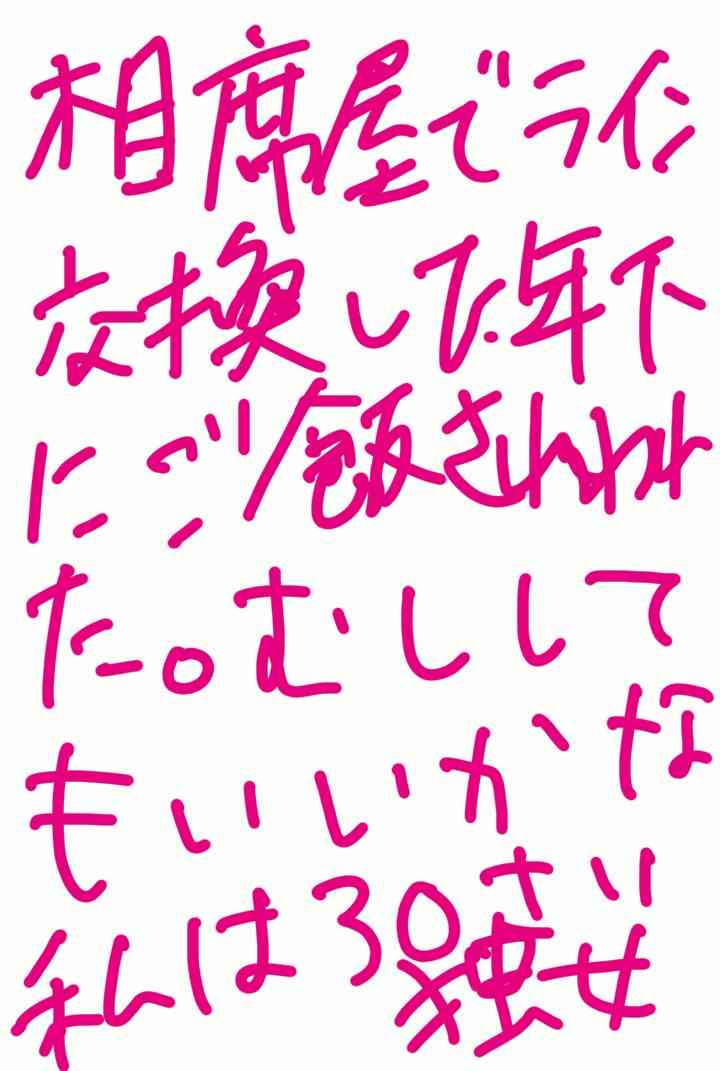 相席屋でライン
交換した年下
にご飯さそわれ
た。むしして
もいいかな
私は30さい
独女